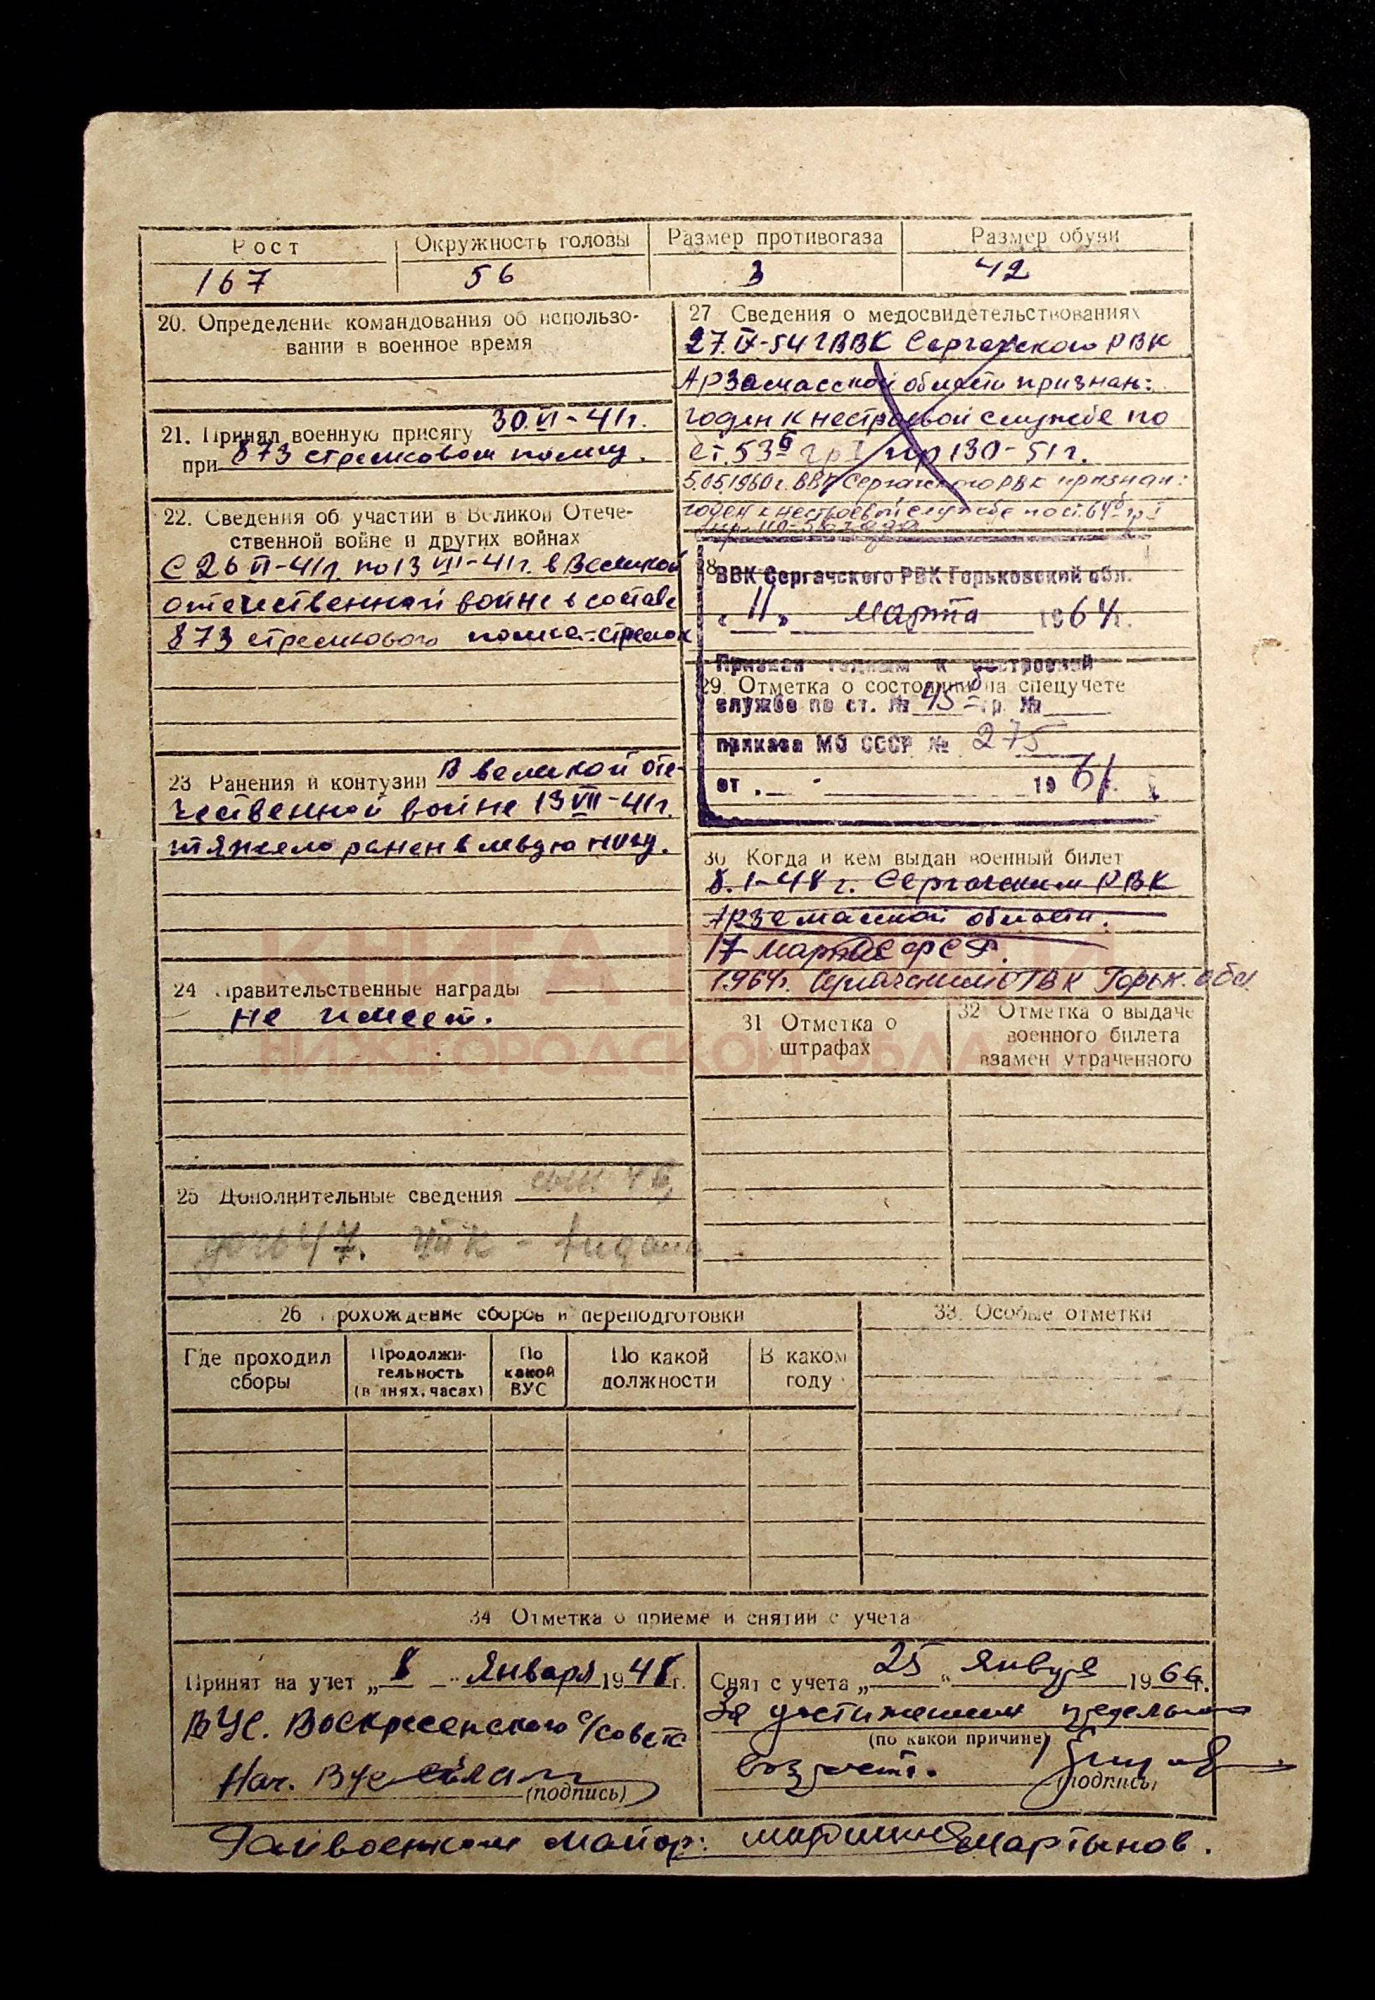 Рост
Окружность головы
Размер противогаза
Размер обуви
167
56
3
42
20. Определение командования об использо-
вании в военное время
21. Принял военную присягу 30.VI-41г.
при 873 стрелковом полку.
22. Сведения об участии в Великой Отече-
ственной войне и других войнах
С 26 VI-41г. по 13 VIII-41г. в Великой
отечественной войне в составе
873 стрелкового полка-стрелок
23 Ранения и контузии В великой оте-
чественной войне 13 VIII-41г.
тяжело ранен в левую ногу.
24 Правительственные награды
не имеет.
25 Дополнительные сведения сын 46,
дочь 47.
27 Сведения о медосвидетельствованиях
27.IX-54г ВВК Сергачского РВК
Арзамасской области признан:
годен к нестроевой службе по
ст. 53б гр I пр 130-51г.
5.05.1960г. ВВК Сергачского РВК признан:
годен к нестроевой службе по ст. 64б гр I
28
ВВК Сергачского РВК Горьковской обл.
„ 11 " марта 1964г.
Признан годным к нестроевой
29. Отметка о состоянии на спецучете
службе по ст. № 45б гр. №
приказа МО СССР № 275
от „ - 1961.
30 Когда и кем выдан военный билет
8.1-48г. Сергачским РВК
Арзамасской области.
17 марта
1964г. Сергачским РВК Горьк. обл.
КНИГА ПАМЯТИ
НИЖЕГОРОДСКОЙ ОБЛАСТИ
31 Отметка о
штрафах
32 Отметка о выдаче
военного билета
взамен утраченного
26 Прохождение сборов и переподготовки
33. Особые отметки
Где проходил
сборы
Продолжи-
тельность
(в днях, часах)
По
какой
ВУС
По какой
должности
В каком
году
34 Отметка о приеме и снятии с учета
Принят на учет „ 8 " января 1948г.
ВУС. Воскресенского с/совета
Нач. ВУС
(подпись)
Снят с учета „ 25 " января 1966г.
За достижением предельного
(по какой причине)
возраста.
(подпись)
Райвоенком майор: Мартынов.